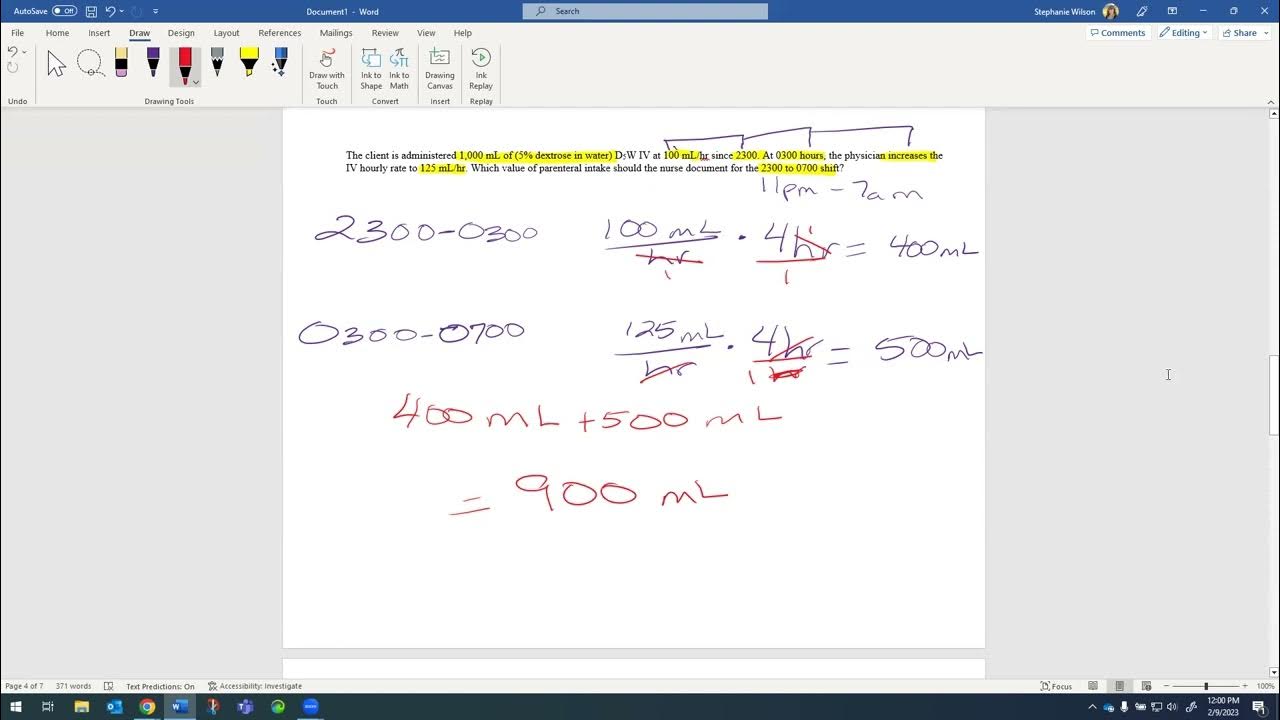 AutoSave Off Document1 - Word Search Stephanie Wilson
File Home Insert Draw Design Layout References Mailings Review View Help Comments Editing Share
Draw with Touch Ink to Shape Ink to Math Drawing Canvas Ink Replay
Undo Drawing Tools Touch Convert Insert Replay
The client is administered 1,000 mL of (5% dextrose in water) D₅W IV at 100 mL/hr since 2300. At 0300 hours, the physician increases the
IV hourly rate to 125 mL/hr. Which value of parenteral intake should the nurse document for the 2300 to 0700 shift?
11pm - 7am
2300-0300 100 mL/hr · 4hr/1 = 400mL
1 1
0300-0700 125 mL/hr · 4hr/1 hr = 500mL
400 mL + 500 mL
= 900 mL
Page 4 of 7 371 words Text Predictions: On Accessibility: Investigate Focus 100%
12:00 PM
2/9/2023